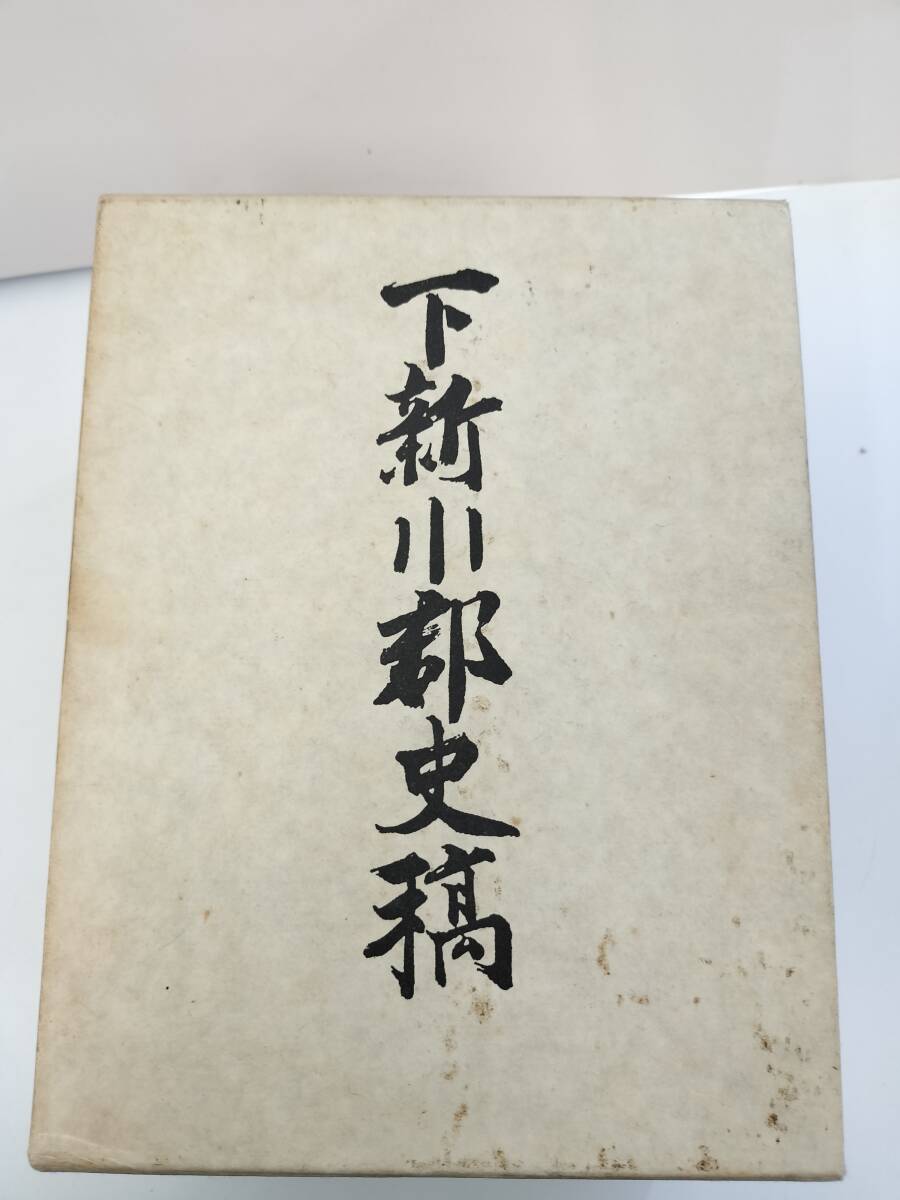 下新川郡史稿